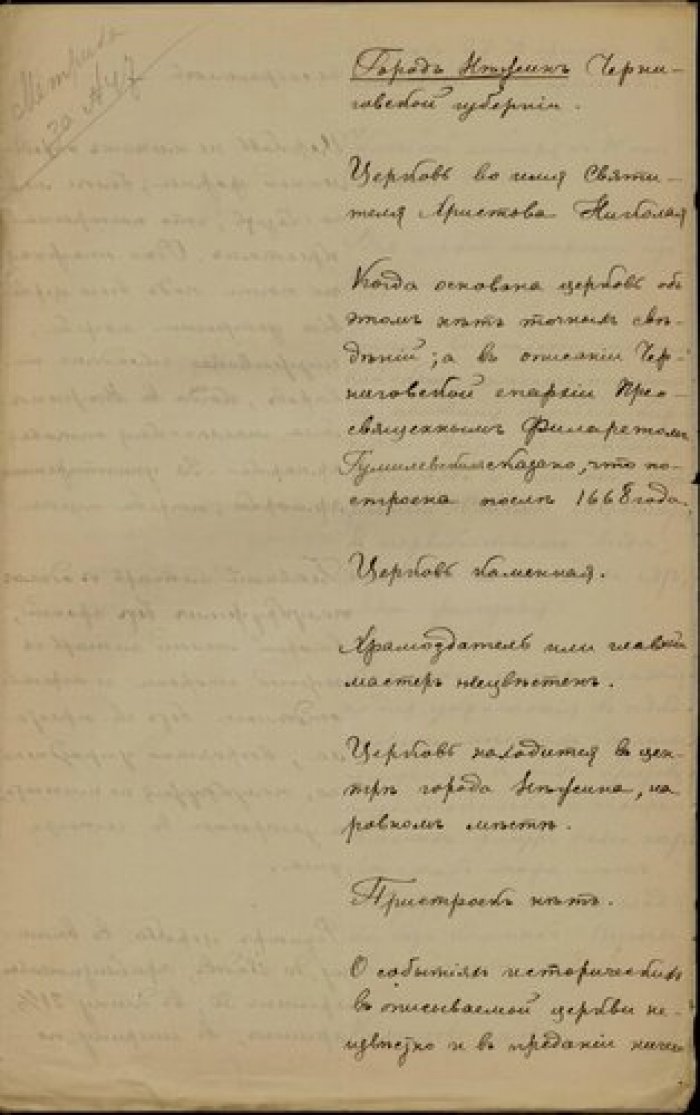 Метрика
Городъ Нѣжинъ Черни-
говской губерніи.
Церковь во имя Святи-
теля Христова Николая
Когда основана церковь объ
этомъ нѣтъ точныхъ свѣ-
дѣній; а въ описаніи Чер-
ниговской епархіи Прео-
священнымъ Филаретомъ
Гумилевскимъ сказано, что по-
строена послѣ 1668 года.
Церковь каменная.
Храмоздатель или главный
мастеръ неизвѣстенъ.
Церковь находится въ цен-
трѣ города Нѣжина, на
ровномъ мѣстѣ.
Пристроекъ нѣтъ.
О событіяхъ историческихъ
въ описываемой церкви не-
извѣстно и въ преданіи ниче-